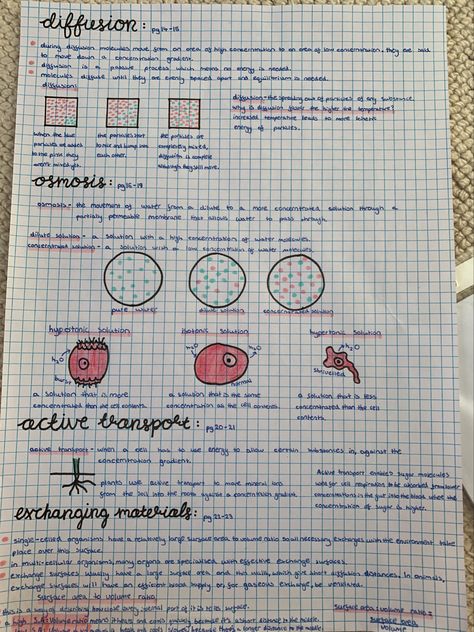 diffusion: pg14-15
during diffusion molecules move from an area of high concentration to an area of low concentration, they are said
to move down a concentration gradient.
diffusion is a passive process which means no energy is needed.
molecules diffuse until they are evenly spaced apart and equilibrium is needed.
diffusion:
diffusion - the spreading out of particles of any substance.
why is diffusion faster the higher the temperature?
increased temperature leads to more kinetic
energy of particles.
when the blue
particles are added
to the pink they
aren't mixed yet.
the particles start
to mix and bump into
each other.
the particles are
completely mixed,
diffusion is complete
although they still move.
osmosis: pg16-19
osmosis - the movement of water from a dilute to a more concentrated solution through a
partially permeable membrane that allows water to pass through.
dilute solution - a solution with a high concentration of water molecules.
concentrated solution - a solution with a low concentration of water molecules.
pure water
dilute solution
concentrated solution
hypotonic solution
isotonic solution
hypertonic solution
H₂O
burst
H₂O
normal
H₂O
shrivelled
a solution that is more
concentrated than the cell contents.
a solution that is the same
concentration as the cell contents.
a solution that is less
concentrated than the cell
contents.
active transport: pg20-21
active transport - when a cell has to use energy to allow certain substances in, against the
concentration gradient.
plants use active transport to move mineral ions
from the soil into the roots against a concentration gradient.
Active transport enables sugar molecules
used for cell respiration to be absorbed from lower
concentrations in the gut into the blood where the
concentration of sugar is higher.
exchanging materials: pg22-23
single-celled organisms have a relatively large surface area to volume ratio so all necessary exchanges with the environment take
place over this surface.
in multi-cellular organisms, many organs are specialised with effective exchange surfaces.
exchange surfaces usually have a large surface area and thin walls, which give short diffusion distances. In animals,
exchange surfaces will have an efficient blood supply or, for gaseous exchange, be ventilated.
surface area to volume ratio,
this is a way of describing how close every internal part of it is to its surface.
surface area : volume ratio =
surface area
volume
a high S.A: Volume ratio means it heats and cools quickly because it's a short distance to the middle.